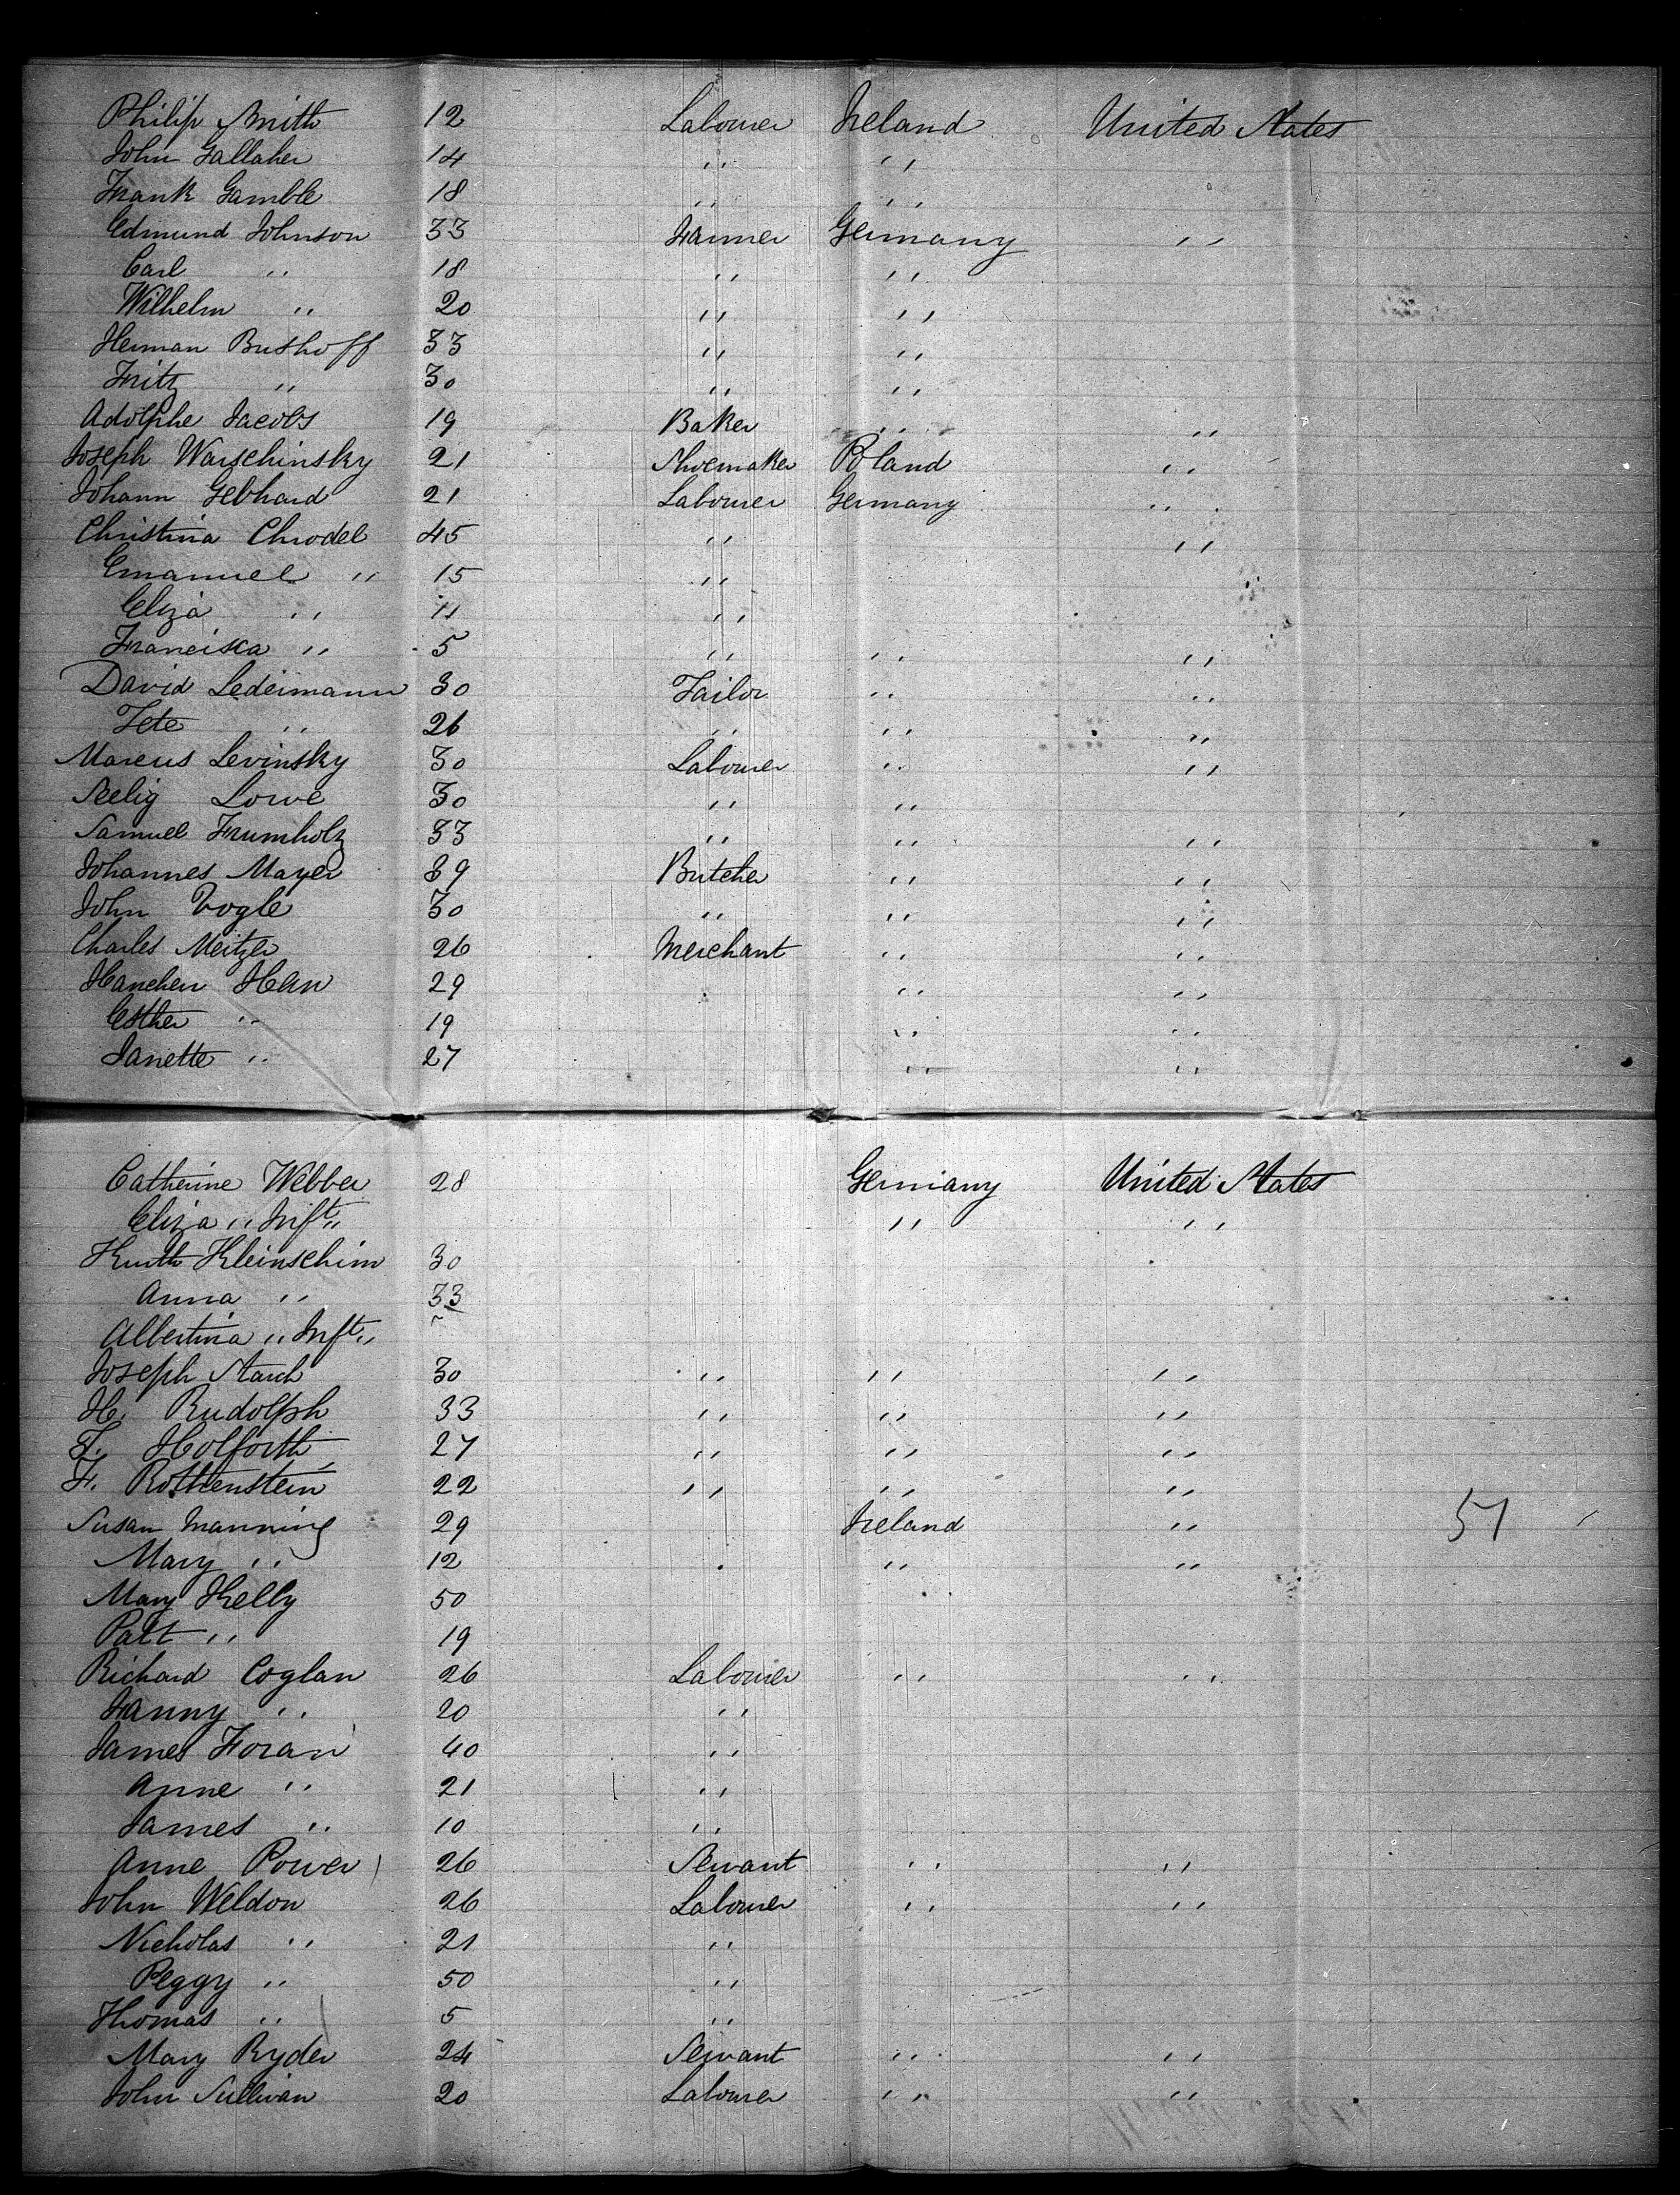 Philip Smith 12 Labourer Ireland United States
John Gallaher 14 " "
Frank Gamble 18 " "
Edmund Johnson 33 Farmer Germany "
Carl " 18 " "
Wilhelm " 20 " "
Herman Bushoff 33 " "
Fritz " 30 " "
Adolphe Jacobs 19 Baker " "
Joseph Warschinsky 21 Shoemaker Poland "
Johann Gebhard 21 Labourer Germany "
Christina Chrodel 45 " "
Emanuel " 15 "
Eliza " 11 "
Franciska " 5 " " "
David Ledermann 30 Tailor " "
Tete " 26 " " "
Marcus Levinsky 30 Labourer " "
Seelig Lowe 30 " "
Samuel Frumholz 33 " " "
Johannes Mayer 39 Butcher " "
John Vogle 30 " " "
Charles Meitzler 26 Merchant " "
Hanchen Hen 29 " "
Esther " 19 " "
Janette " 27 " "
Catherine Webber 28 Germany United States
Eliza " Inft " " "
Kurth Kleinschim 30
Anna " 33
Albertina " Inft "
Joseph Starch 30 " " "
H. Rudolph 33 " " "
T. Holforth 27 " " "
F. Rothenstein 22 " " "
Susan Manning 29 Ireland " 51
Mary " 12 " "
Mary Kelly 50
Patt " 19
Richard Coglan 26 Labourer " "
Fanny " 20 "
James Foran 40 "
Anne " 21 "
James " 10 "
Anne Power 26 Servant " "
John Weldon 26 Labourer " "
Nicholas " 21 "
Peggy " 50 "
Thomas " 5 "
Mary Ryder 24 Servant " "
John Sullivan 20 Labourer " "